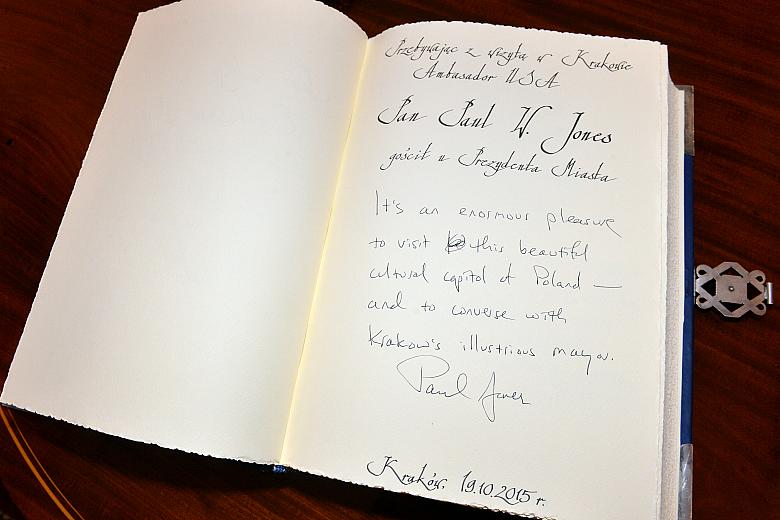 Przebywając z wizytą w Krakowie
Ambasador USA
Pan Paul W. Jones
gościł u Prezydenta Miasta
It's an enormous pleasure
to visit this beautiful
cultural capitol of Poland —
and to converse with
Krakow's illustrious mayor.
Paul Jones
Kraków, 19.10.2015 r.